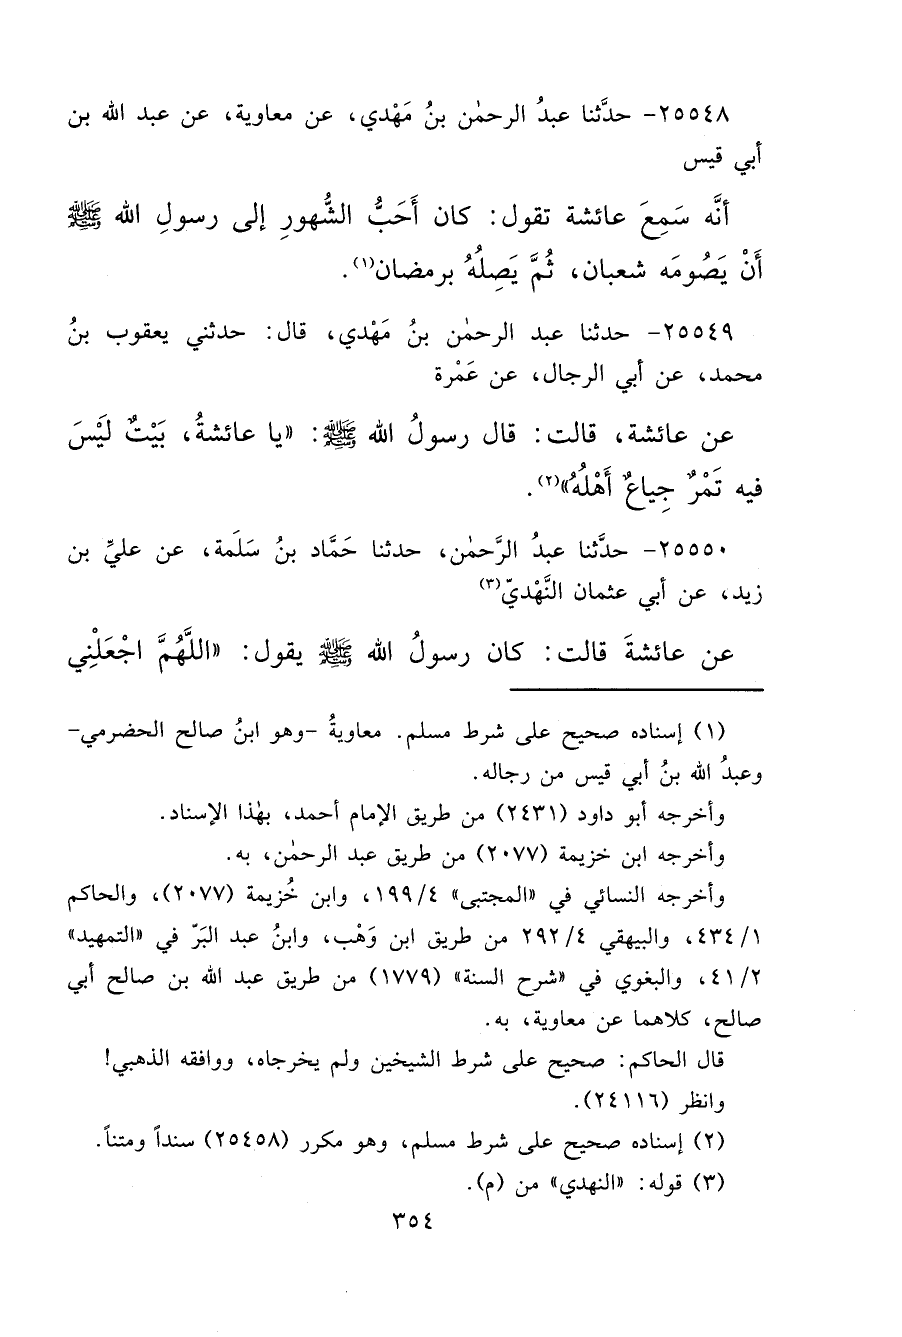 ٢٥٥٤٨- حدَّثنا عبدُ الرحمٰن بنُ مَهْدي، عن معاوية، عن عبد الله بن
أبي قيس
أنَّه سَمِعَ عائشة تقول: كان أَحَبُّ الشُّهورِ إلى رسولِ الله ﷺ
أَنْ يَصُومَه شعبان، ثُمَّ يَصِلُهُ برمضان(١).
٢٥٥٤٩- حدثنا عبد الرحمٰن بنُ مَهْدي، قال: حدثني يعقوب بنُ
محمد، عن أبي الرجال، عن عَمْرة
عن عائشة، قالت: قال رسولُ الله ﷺ: «يا عائشةُ، بَيْتٌ لَيْسَ
فيه تَمْرٌ جِياعٌ أَهْلُهُ»(٢).
٢٥٥٥٠- حدَّثنا عبدُ الرَّحمٰن، حدثنا حَمَّاد بنُ سَلَمة، عن عليِّ بن
زيد، عن أبي عثمان النَّهْديّ(٣)
عن عائشةَ قالت: كان رسولُ الله ﷺ يقول: «اللَّهُمَّ اجْعَلْنِي
(١) إسناده صحيح على شرط مسلم. معاويةُ -وهو ابنُ صالح الحضرمي-
وعبدُ الله بنُ أبي قيس من رجاله.
وأخرجه أبو داود (٢٤٣١) من طريق الإمام أحمد، بهٰذا الإسناد.
وأخرجه ابن خزيمة (٢٠٧٧) من طريق عبد الرحمٰن، به.
وأخرجه النسائي في «المجتبى» ١٩٩/٤، وابن خُزيمة (٢٠٧٧)، والحاكم
٤٣٤/١، والبيهقي ٢٩٢/٤ من طريق ابن وَهْب، وابنُ عبد البَرّ في «التمهيد»
٤١/٢، والبغوي في «شرح السنة» (١٧٧٩) من طريق عبد الله بن صالح أبي
صالح، كلاهما عن معاوية، به.
قال الحاكم: صحيح على شرط الشيخين ولم يخرجاه، ووافقه الذهبي!
وانظر (٢٤١١٦).
(٢) إسناده صحيح على شرط مسلم، وهو مكرر (٢٥٤٥٨) سنداً ومتناً.
(٣) قوله: «النهدي» من (م).
٣٥٤